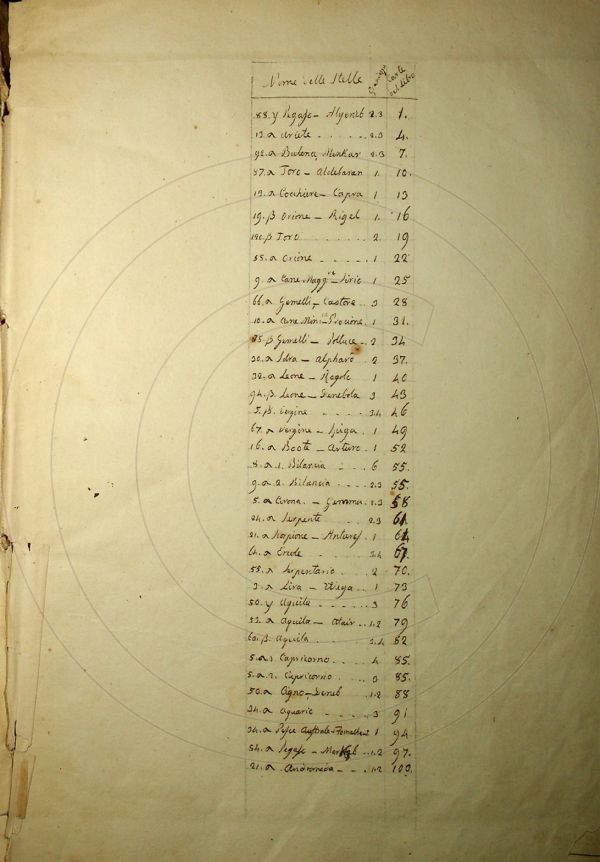 Nome delle Stelle Grandezze Carte del Libro
88. γ Pegaso - Algenib 2.3 1.
13. α Ariete 2.3 4.
92. α Balena, Menkar 2.3 7.
87. α Toro - Aldebaran 1. 10.
13. α Cocchiere - Capra 1 13
19. β Orione - Rigel 1. 16
β Toro 2. 19
58. α Orione 1 22
9. α Cane Maggre - Sirio 1 25
66. α Gemelli - Castore 3 28
10. α Cane Minre - Procione. 1 31.
78. β Gemelli - Polluce 2 34
30. α Idra - Alphard 2 37.
32. α Leone - Regolo 1 40
94. β Leone - Denebola 3 43
5. β. Vergine 3.4 46
67. α Vergine - Spiga 1 49
16. α Boote - Arturo 1 52
8. α 1. Bilancia 6 55.
9. α 2. Bilancia 2.3 55.
5. α Corona - Gemma 2.3 58
24. α Serpente 2.3 61
21. α Scorpione - Antares 1 64
64. α Ercole 3.4 67.
55. α Serpentario 2 70.
3. α Lira - Wega 1 73
50. γ Aquila 3 76
53. α Aquila - Atair 1.2 79
60. β. Aquila 3.4 82
5. α 1. Capricorno 4 85.
5. α 2. Capricorno 3 85.
50. α Cigno - Deneb 1.2 88
34. α Aquario 3 91
24. α Pesce Australe - Fomalhaut 1 94
54. α Pegaso - Markab 1.2 97.
21. α Andromeda 1.2 100.